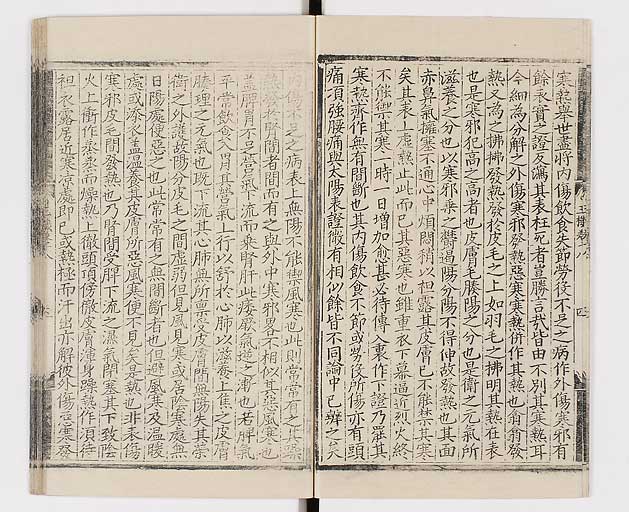 寒熱舉世盡將内傷飲食失節勞役不足之病作外傷寒邪有
餘表實之證反瀉其表枉死者豈勝言哉皆由不別其寒熱耳
今細為分解之外傷寒邪發熱惡寒寒熱併作其熱也翕翕發
熱又為之拂拂發熱發於皮毛之上如羽毛之拂明其熱在表
也是寒邪犯高之高者也皮膚毛腠陽之分也是衛之元氣所
滋養之分也以寒邪乘之鬱遏陽分陽不得伸故發熱也其面
赤鼻氣擁塞不通心中煩悶稍以袒露其皮膚已不能禁其寒
矣其表上虛熱止此而已其惡寒也雖重衣下幕逼近烈火終
不能禦其寒一時一日增加愈甚必待傳入裏作下證乃罷其
寒熱齊作無有間斷也其内傷飲食不節或勞役所傷亦有頭
痛項強腰痛與太陽表證微有相似餘皆不同論中已辨之矣
内傷不足之病表上無陽不能禦風寒也此則常常有之其躁
熱發於腎間者間而有之與外中寒邪略不相似其惡風寒也
蓋脾胃不足營氣下流而乘腎肝此痿厥氣逆之漸也若脾氣
平常飲食入胃其營氣上行以舒於心肺以滋養上焦之皮膚
腠理之元氣也既下流其心肺無所稟受皮膚間無陽失其榮
衛之外護故陽分皮毛之間虛弱但見風見寒或居陰寒處無
日陽處便惡之也此常常有之無間斷者也但避風寒及溫暖
處或添衣蓋溫養其皮膚所惡風寒便不見矣是熱也非表傷
寒邪皮毛間發熱也乃腎間受脾下流之濕氣閉塞其下致陰
火上衝作蒸蒸而燥熱上徹頭頂傍徹皮膚渾身躁熱作須待
袒衣露居近寒涼處即已或熱極而汗出亦解彼外傷惡寒發